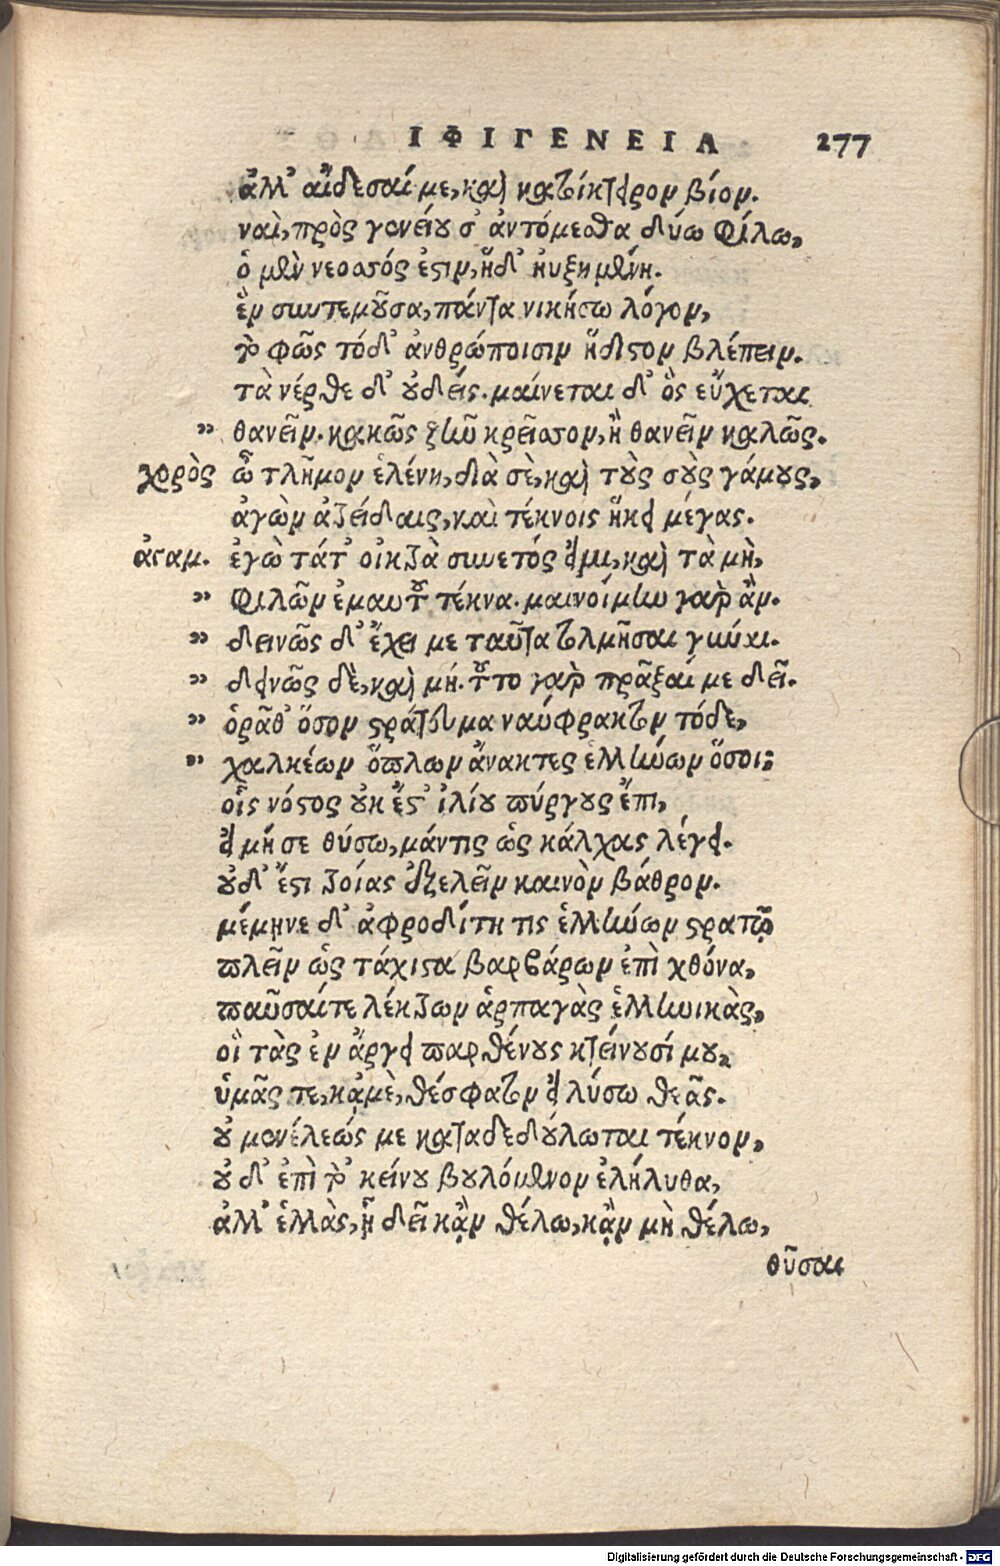 ΙΦΙΓΕΝΕΙΑ 277
ἀλλ' αἴδεσαί με, καὶ κατοίκτειρον βίον.
ναὶ, πρὸς γενείου σ' ἀντόμεσθα δύω φίλω,
ὁ μὲν νεοσσός ἐστιν, ἥδ' ηὐξημένη.
ἓν συντεμοῦσα, πάντα νικήσω λόγον,
τὸ φῶς τόδ' ἀνθρώποισιν ἥδιστον βλέπειν.
τὰ νέρθε δ' οὐδείς. μαίνεται δ' ὃς εὔχεται
" θανεῖν. κακῶς ζῆν κρεῖσσον, ἢ θανεῖν καλῶς.
χορὸς ὦ τλῆμον ἑλένη, διὰ σὲ, καὶ τοὺς σοὺς γάμους,
ἀγὼν ἀτρείδαις, καὶ τέκνοις ἥκει μέγας.
ἀγαμ. ἐγὼ τάτ' οἰκτρὰ συνετός εἰμι, καὶ τὰ μὴ,
" φιλῶν ἐμαυτοῦ τέκνα. μαινοίμην γὰρ ἄν.
" δεινῶς δ' ἔχει με ταῦτα τολμῆσαι γύναι.
" δεινῶς δὲ, καὶ μή. τοῦτο γὰρ πρᾶξαί με δεῖ.
" ὁρᾶθ' ὅσον στράτευμα ναύφρακτον τόδε,
" χαλκέων ὅπλων ἄνακτες ἑλλήνων ὅσοι:
οἷς νόστος οὐκ ἔστ' ἰλίου πύργους ἔπι,
εἰ μή σε θύσω, μάντις ὡς κάλχας λέγει.
οὐδ' ἔστι τροίας ἐξελεῖν καινὸν βάθρον.
μέμηνε δ' ἀφροδίτη τις ἑλλήνων στρατῷ
πλεῖν ὡς τάχιστα βαρβάρων ἐπὶ χθόνα,
παῦσαίτε λέκτρων ἁρπαγὰς ἑλληνικὰς,
οἳ τὰς ἐν ἄργει παρθένους κτείνουσί μου,
ὑμᾶς τε, κᾀμὲ, θέσφατον εἰ λύσω θεᾶς.
οὐ μενέλεώς με καταδεδούλωται τέκνον,
οὐδ' ἐπὶ τὸ κείνου βουλόμενον ἐλήλυθα,
ἀλλ' ἑλλὰς, ᾗ δεῖ κᾂν θέλω, κᾂν μὴ θέλω,
θῦσαι
Digitalisierung gefördert durch die Deutsche Forschungsgemeinschaft - DFG